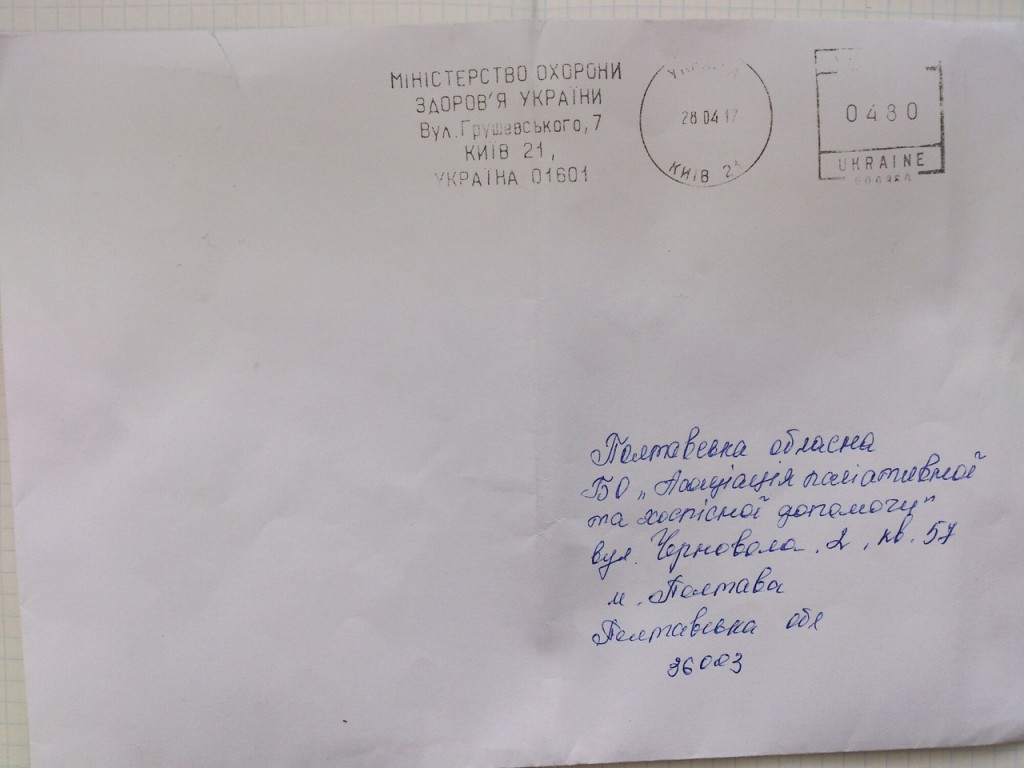 МІНІСТЕРСТВО ОХОРОНИ
ЗДОРОВ'Я УКРАЇНИ
Вул.Грушевського,7
КИЇВ 21,
УКРАЇНА 01601
Україна
28 04 17
КИЇВ 21
0480
UKRAINE
Полтавська обласна
БО „Асоціація паліативної
та хоспісної допомоги"
вул. Черновола, 2, кв. 57
м. Полтава
Полтавська обл
36003